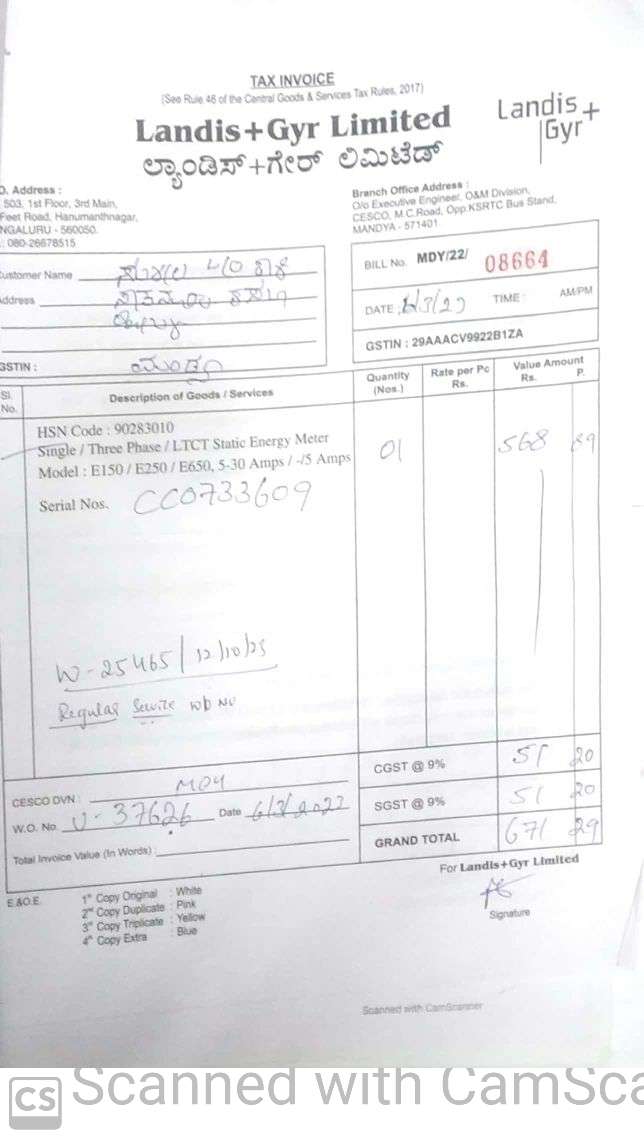 TAX INVOICE
(See Rule 46 of the Central Goods & Services Tax Rules, 2017)
Landis+Gyr Limited
ಲ್ಯಾಂಡಿಸ್+ಗೇರ್ ಲಿಮಿಟೆಡ್
Landis+
Gyr
O. Address :
503, 1st Floor, 3rd Main,
Feet Road, Hanumanthnagar,
NGALURU - 560050.
: 080-26678515
Branch Office Address :
O/o Executive Engineer, O&M Division,
CESCO, M.C.Road, Opp.KSRTC Bus Stand,
MANDYA - 571401.
ustomer Name
ddress
GSTIN : ಮಂಡ್ಯ
BILL No. MDY/22/ 08664
DATE : TIME : AM/PM
GSTIN : 29AAACV9922B1ZA
Sl. No. Description of Goods / Services Quantity (Nos.) Rate per Pc Rs. Value Amount Rs. P.
HSN Code : 90283010
Single / Three Phase / LTCT Static Energy Meter 01 568 89
Model : E150 / E250 / E650, 5-30 Amps / -/5 Amps
Serial Nos. CC0733609
W-25465/12/10/25
Regular Service WB No
CGST @ 9% 51 20
SGST @ 9% 51 20
GRAND TOTAL 671 29
CESCO DVN : MDY
W.O. No. U-37626 Date 6/3/2022
Total Invoice Value (In Words) :
For Landis+Gyr Limited
Signature
E.&O.E.
1st Copy Original : White
2nd Copy Duplicate : Pink
3rd Copy Triplicate : Yellow
4th Copy Extra : Blue
Scanned with CamScanner
CS Scanned with CamSca